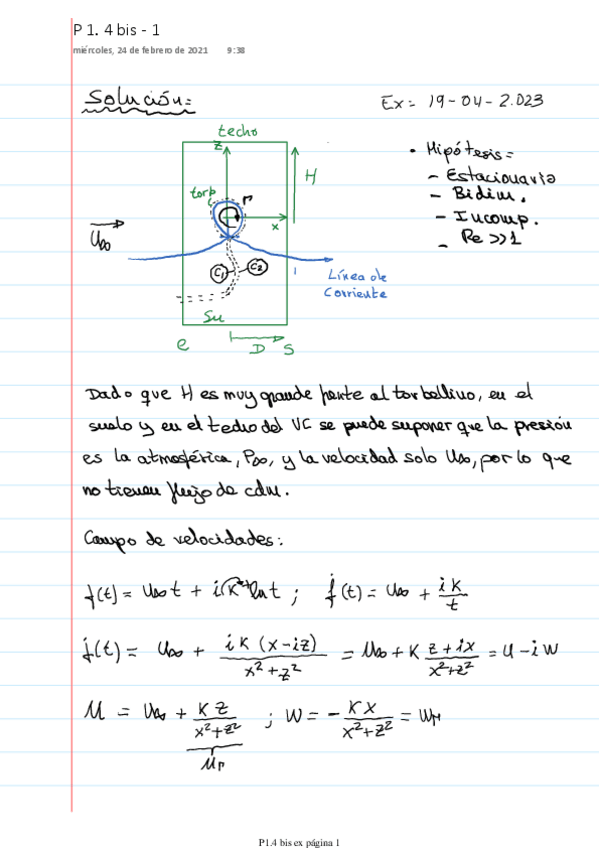 P 1. 4 bis - 1
miércoles, 24 de febrero de 2021 9:38
Solución:
Ex = 19-04-2.023
techo
z
H
torb
Γ
x
U∞
C1
C2
Línea de
Corriente
Su
e
D
S
• Hipótesis =
- Estacionaria
- Bidim.
- Incomp.
- Re >> 1
Dado que H es muy grande frente al torbellino, en el
suelo y en el techo del VC se puede suponer que la presión
es la atmosférica, P∞, y la velocidad solo U∞, por lo que
no tienen flujo de cdm.
Campo de velocidades:
f(t) = U∞ t + i K ln t ; ḟ(t) = U∞ + iK/t
ḟ(t) = U∞ + iK(x-iz)/(x²+z²) = U∞ + K (z+ix)/(x²+z²) = u - iw
u = U∞ + Kz/(x²+z²) ; w = - Kx/(x²+z²) = wΓ
uΓ
P1.4 bis ex página 1